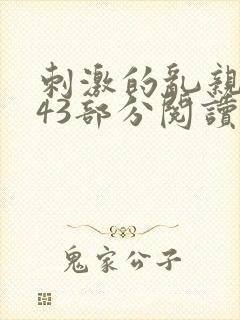 刺激的亂親
43部分閱讀
鬼家公子